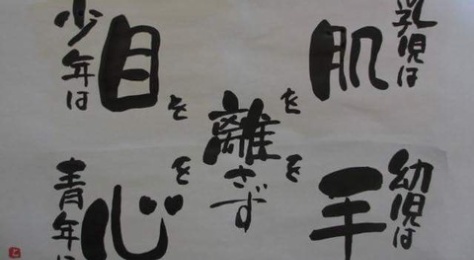 乳児は
肌を
幼児は
手を
離さず
少年は
目を
青年は
心を